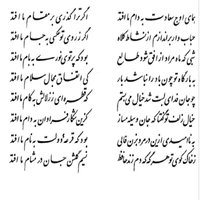 همای اوج سعادت به دام ما افتد اگر ترا گذری بر مقام ما افتد
حباب وار براندازم از نشاط کلاه اگر ز روی تو عکسی به جام ما افتد
شبی که ماه مراد از افق شود طالع بود که پرتو نوری به بام ما افتد
به بارگاه تو چون باد را نباشد بار کی اتفاق مجال سلام ما افتد
چو جان فدای لبت شد خیال می بستم که قطره ای ز زلالش به کام ما افتد
خیال زلف تو گفتا که جان وسیله مساز کزین شکار فراوان به دام ما افتد
به ناامیدی ازین در مرو بزن فالی بود که قرعه دولت به نام ما افتد
ز خاک کوی تو هر گه که دم زند حافظ نسیم گلشن جان در مشام ما افتد